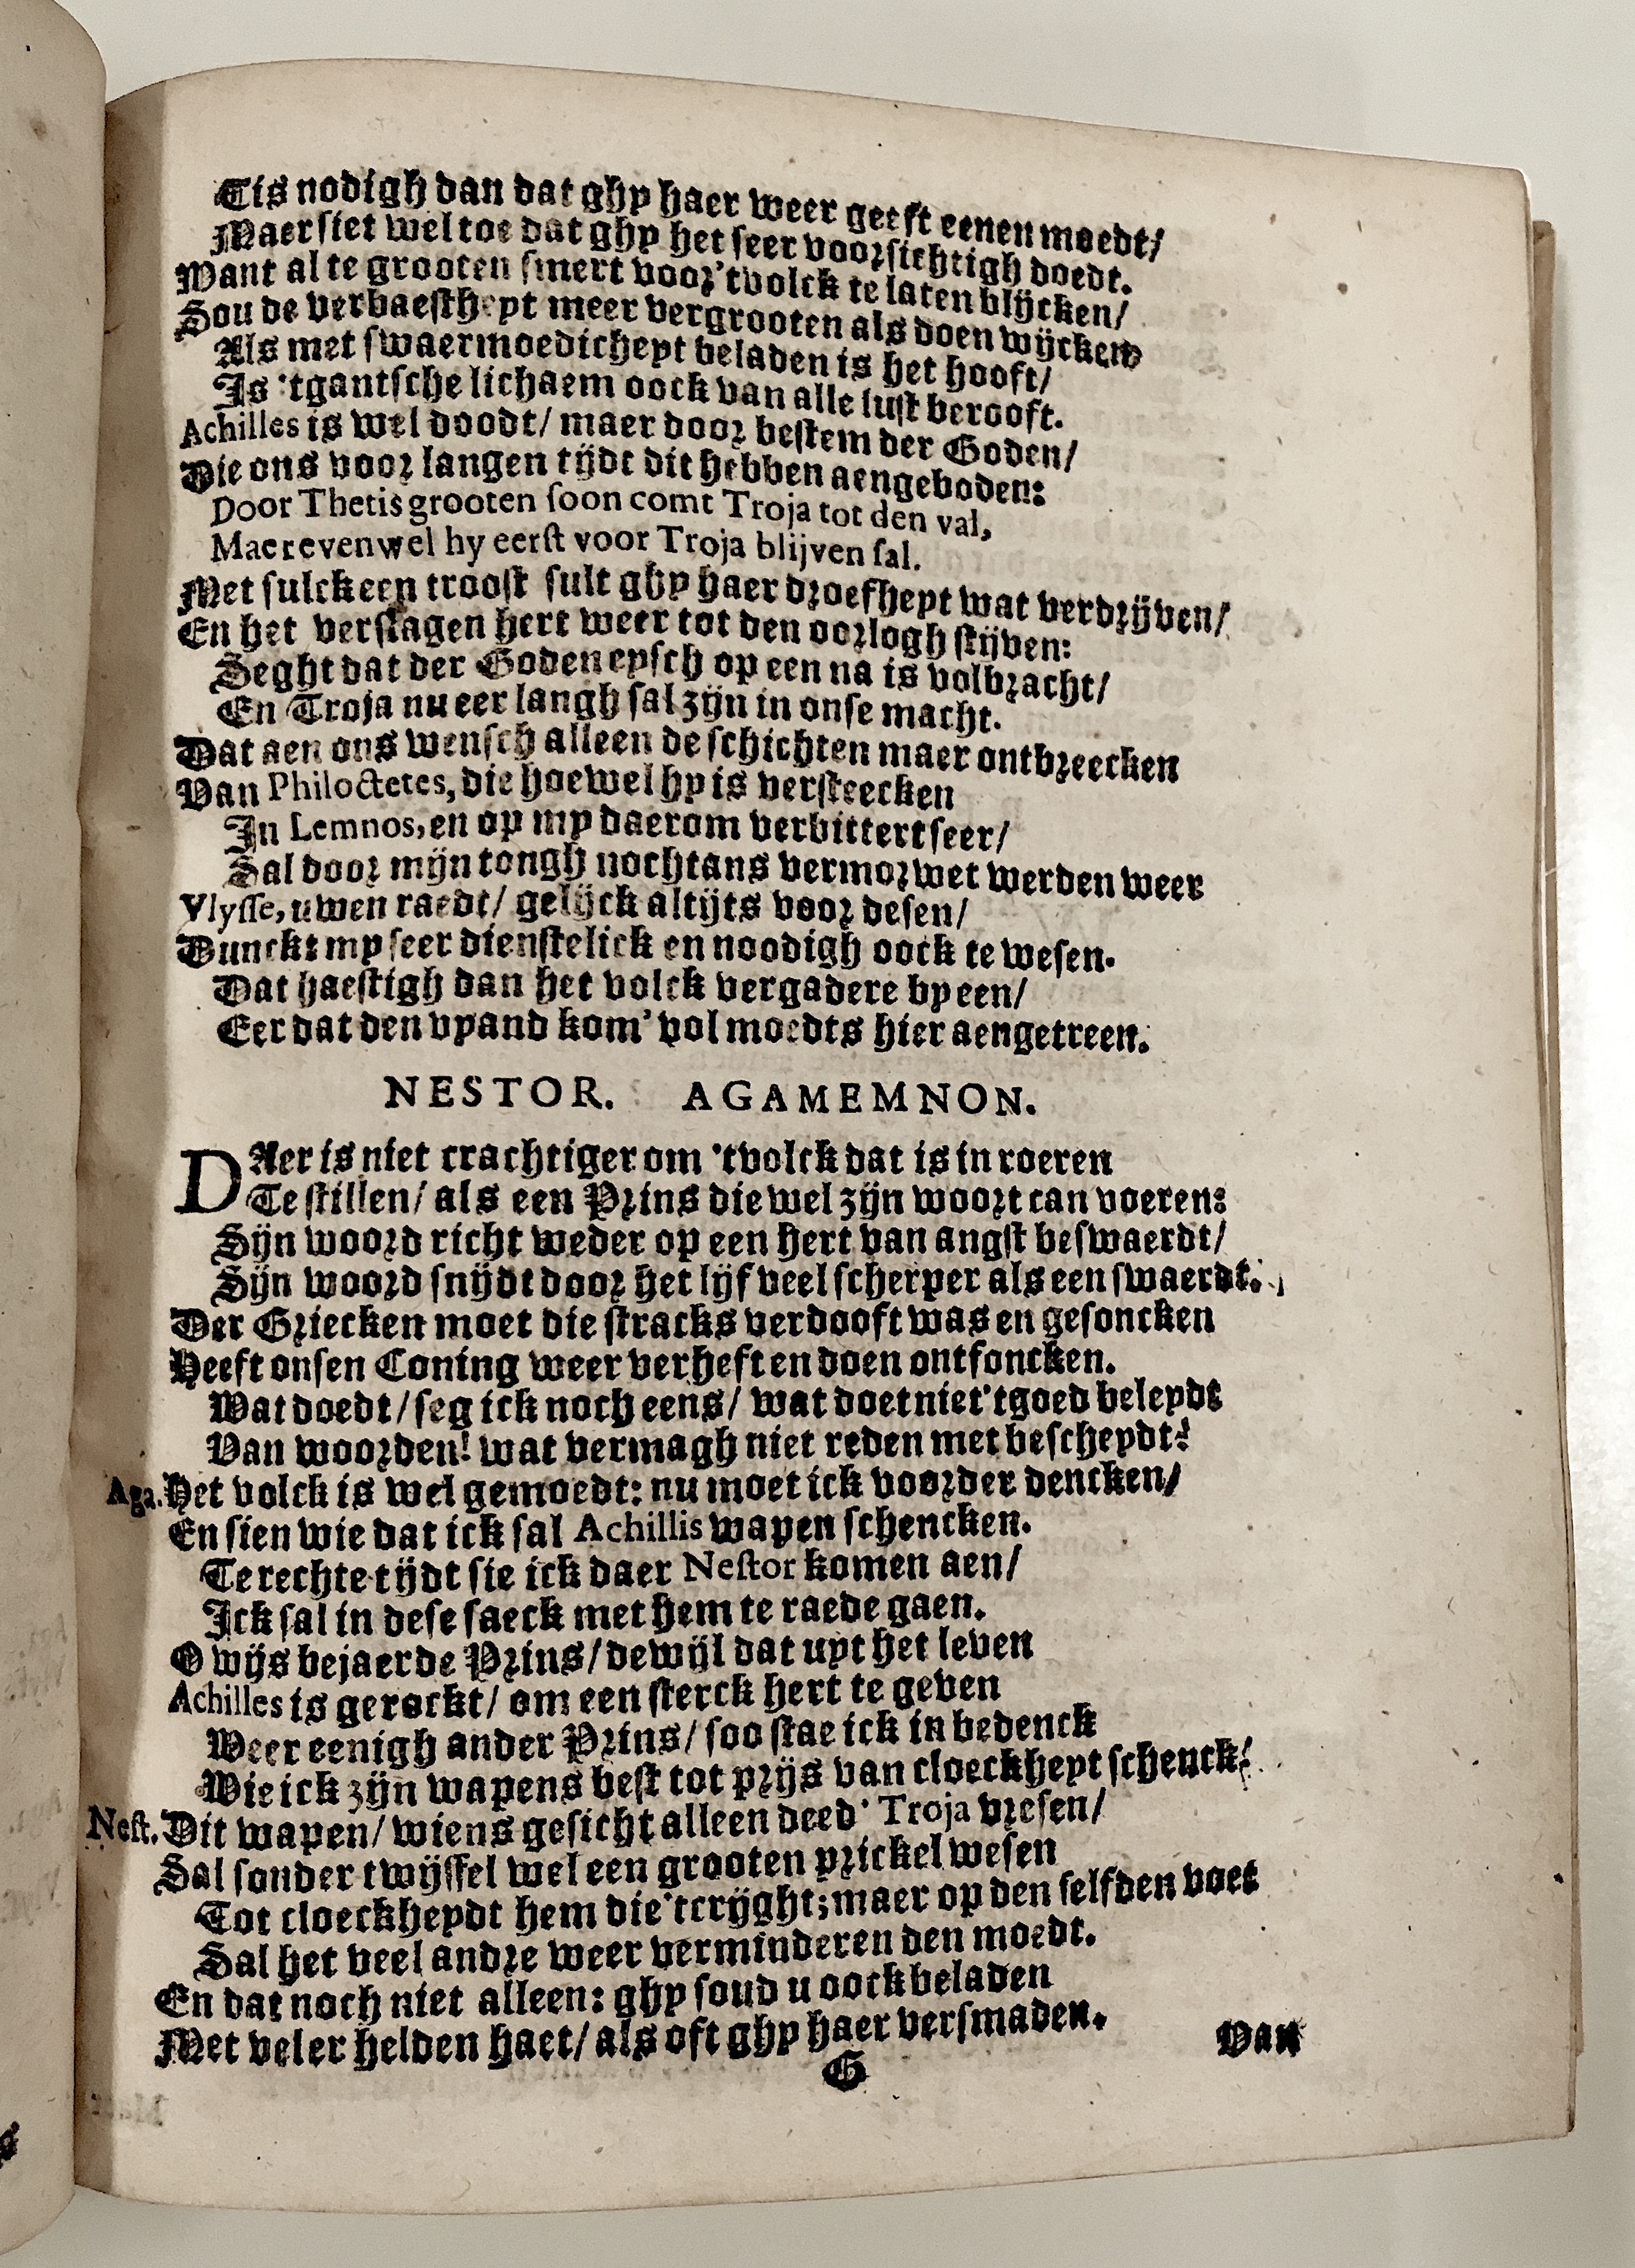 Tis nodigh dan dat ghy haer weer geeft eenen moedt/
Maer siet wel toe dat ghy het seer voorsichtigh doedt.
Want al te grooten smert voor 'tvolck te laten blijcken/
Sou de verbaestheyt meer vergrooten als doen wijcken
Als met swaermoedicheyt beladen is het hooft/
Is 'tgantsche lichaem oock van alle lust berooft.
Achilles is wel doodt/ maer door bestem der Goden/
Die ons voor langen tijdt dit hebben aengeboden:
Door Thetis grooten soon comt Troja tot den val,
Maer evenwel hy eerst voor Troja blijven sal.
Met sulck een troost sult ghy haer droefheyt wat verdrijven/
En het verslagen hert weer tot den oorlogh stijven:
Seght dat der Goden eysch op een na is volbracht/
En Troja nu eer langh sal zijn in onse macht.
Dat aen ons wensch alleen de schichten maer ontbreecken
Van Philoctetes, die hoewel hy is versteecken
In Lemnos, en op my daerom verbittert seer/
Sal door mijn tongh nochtans vermorwet werden weer
Vlysse, uwen raedt/ gelijck altijts voor desen/
Dunckt my seer dienstelick en noodigh oock te wesen.
Dat haestigh dan het volck vergadere by een/
Eer dat den vyand kom' vol moedts hier aengetreen.
NESTOR. AGAMEMNON.
DAer is niet crachtiger om 'tvolck dat is in roeren
Te stillen/ als een Prins die wel zijn woort can voeren:
Sijn woord richt weder op een hert van angst beswaerdt/
Sijn woord snijdt door het lijf veel scherper als een swaerdt.
Der Griecken moet die stracks verdooft was en gesoncken
Heeft onsen Coning weer verheft en doen ontfoncken.
Wat doedt/ seg ick noch eens/ wat doet niet 'tgoed beleydt
Van woorden! wat vermagh niet reden met bescheydt?
Aga. Het volck is wel gemoedt: nu moet ick voorder dencken/
En sien wie dat ick sal Achillis wapen schencken.
Te rechte tijdt sie ick daer Nestor komen aen/
Ick sal in dese saeck met hem te raede gaen.
O wijs bejaerde Prins/ dewijl dat uyt het leven
Achilles is geruckt/ om een sterck hert te geven
Weer eenigh ander Prins/ soo stae ick in bedenck
Wie ick zijn wapens best tot prijs van cloeckheyt schenck?
Nest. Dit wapen/ wiens gesicht alleen deed' Troja vresen/
Sal sonder twijffel wel een grooten prickel wesen
Tot cloeckheydt hem die 'tcrijght; maer op den selfden voet
Sal het veel andre weer verminderen den moedt.
En dat noch niet alleen: ghy soud u oock beladen
Met veler helden haet/ als oft ghy haer versmaden.
G
Van